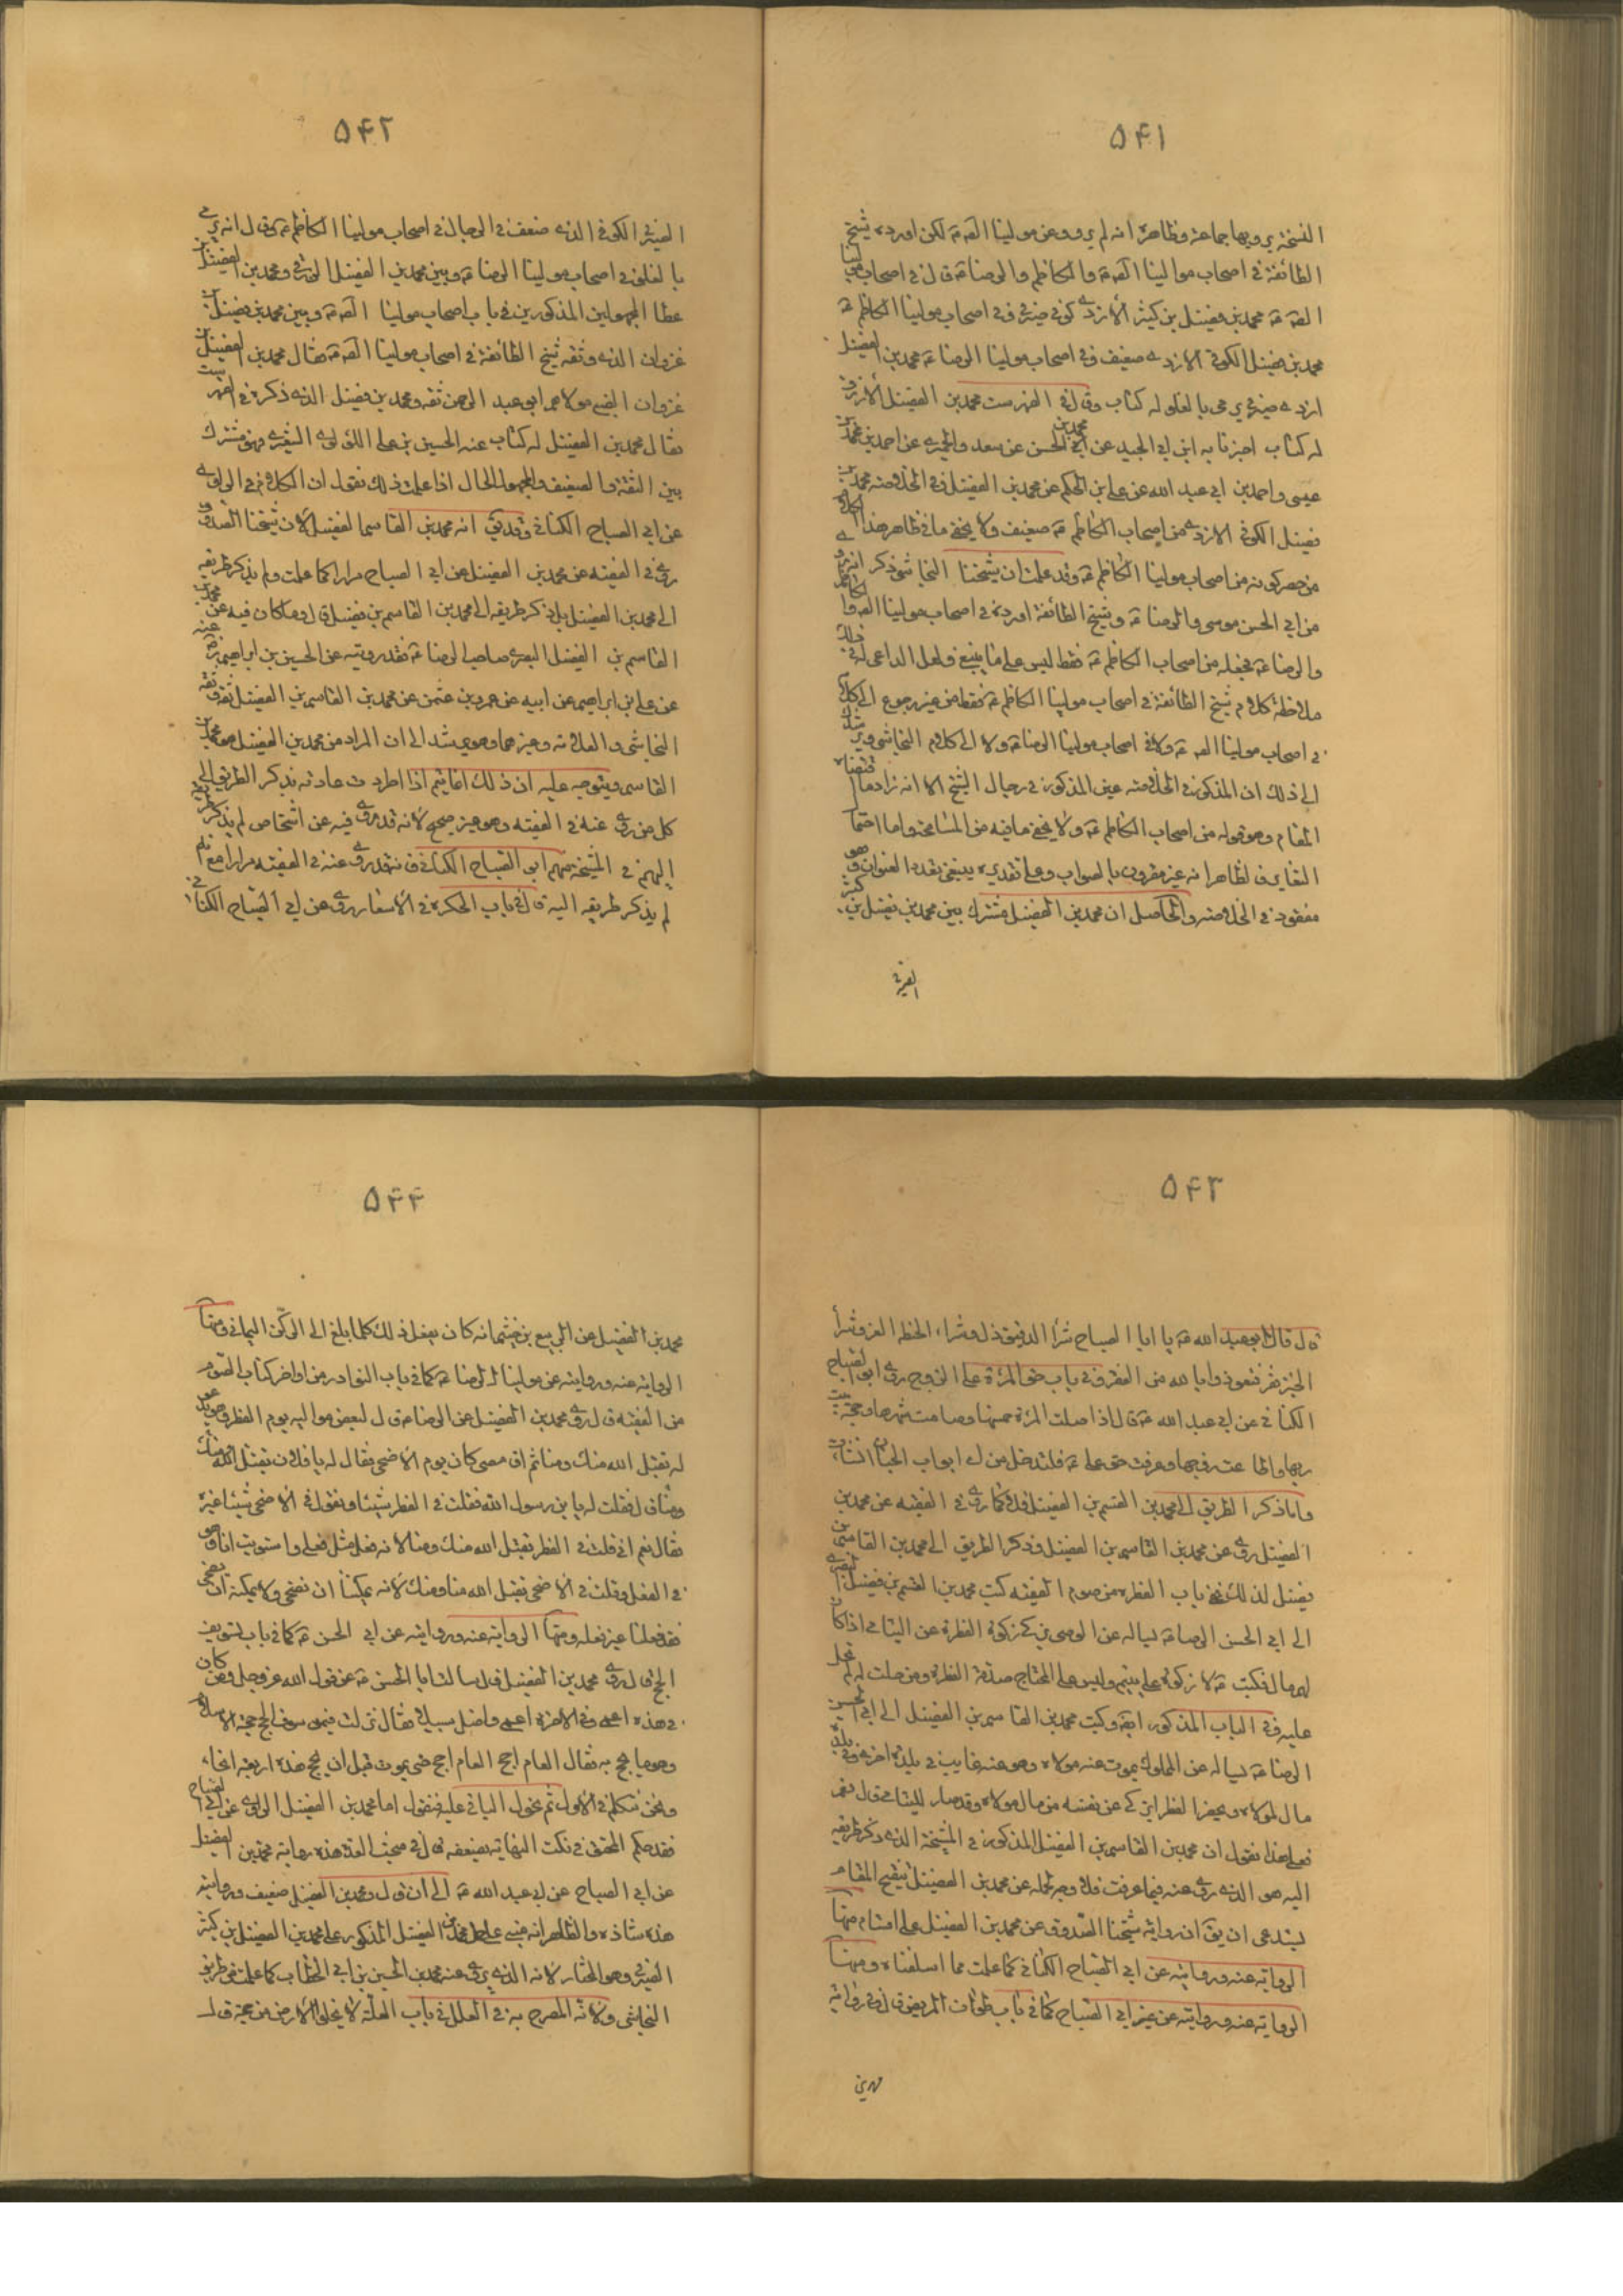 ۵۴۱
النسخة يرويها جماعة وظاهره انه لم يرو عن مولينا الصه ع لكن اورده شيخ
الطائفة في اصحاب موالينا الصه ع والكاظم والرضا ع قال في اصحاب مولينا
الصه ع محمد بن فضيل بن كثير الأزدي كوفي صيرفي وفي اصحاب مولينا الكاظم ع
محمد بن فضيل الكوفي الازدي ضعيف وفي اصحاب مولينا الرضا ع محمد بن الفضيل
ازدي صيرفي يرمى بالغلو له كتاب وقال في الفهرست محمد بن الفضيل الأزرق
له كتاب اخبرنا به ابن ابي الجيد عن محمد بن الحسن عن سعد والحميري عن احمد بن محمد بن
عيسى واحمد بن ابي عبد الله عن علي بن الحكم عن محمد بن الفضيل وفي الخلاصة محمد بن
فضيل الكوفي الازدي من اصحاب الكاظم ع ضعيف ولا يخفى ما في ظاهر هذا الكلام
من حصر كونه من اصحاب مولينا الكاظم ع وقد علمت ان شيخنا النجاشي ذكر انه روى
من ابي الحسن موسى والرضا ع وشيخ الطائفة اورده في اصحاب مولينا الصه والكاظم
والرضا ع فجعله من اصحاب الكاظم ع فقط ليس على ما ينبغي ولعل الداعي له في ذلك
ملاحظة كلام شيخ الطائفة في اصحاب مولينا الكاظم ع فقط من غير رجوع الى كلامه
في اصحاب مولينا الصه ع ولا في اصحاب مولينا الرضا ع ولا الى كلام النجاشي ويرشدك
الى ذلك ان المذكور في الخلاصة عين المذكور في رجال الشيخ الا انه زاد ما اقتضاه
المقام وهو قوله من اصحاب الكاظم ع ولا يخفى ما فيه من المسامحة واما احتمال
التغاير فالظاهر انه غير مقرون بالصواب وعلى تقديره ينبغي تعدد العنوان وهو
مفقود في الخلاصة والحاصل ان محمد بن الفضيل مشترك بين محمد بن فضيل بن كثير
الصيرفي
۵۴۲
الصيرفي الكوفي الذي ضعفه في الرجال في اصحاب مولينا الكاظم ع وقال انه يرمى
بالغلو في اصحاب مولينا الرضا ع وبين محمد بن الفضيل الزرقي ومحمد بن الفضيل بن
عطا المجهولين المذكورين في باب اصحاب مولينا الصه ع وبين محمد بن فضيل بن
غزوان الذي وثقه شيخ الطائفة في اصحاب مولينا الصه ع فقال محمد بن الفضيل بن
غزوان الضبي مولاهم ابو عبد الرحمن ثقة ومحمد بن فضيل الذي ذكره في الفهرست
فقال محمد بن الفضيل له كتاب عنه الحسين بن علي اللؤلؤي الشعيري فهو مشترك
بين الثقة والضعيف والمجهول الحال اذا علمت ذلك نقول ان الكلام في الراوي
عن ابي الصباح الكناني وقد يق انه محمد بن القاسم الفضيل لان شيخنا الصدوق
روى في الفقيه عن محمد بن الفضيل عن ابي الصباح مرارا كما علمت ولم يذكر طريقه
الى محمد بن الفضيل بل ذكر طريقه الى محمد بن القاسم بن فضيل قال وما كان فيه عن محمد بن
القاسم بن الفضيل البصري صاحب الرضا ع فقد رويته عن الحسين بن ابراهيم رضي عنه
عن علي بن ابراهيم عن ابيه عن عمرو بن عثمن عن محمد بن القاسم بن الفضيل ثقة وثقه
النجاشي والعلامة وغيرهما وهو يرشد الى ان المراد من محمد بن الفضيل هو محمد بن
القاسم ويتوجه عليه ان ذلك انما يتم اذا اطردت عادته بذكر الطريق الى
كل من روى عنه في الفقيه وهو غير صحيح لانه قد روى فيه عن اشخاص لم يذكر طريقه
اليهم في المشيخة منهم ابي الصباح الكناني فانه قد روى عنه في الفقيه مرارا مع انه
لم يذكر طريقه اليه قال في باب الحكرة في الأسعار روى عن ابي الصباح الكناني
۵۴۳
قال قال ابو عبد الله ع يا ابا الصباح شرا الدقيق ذل وشراء الحنطة العز وشرا
الخبز فقر فنعوذ بالله من الفقر وفي باب حق المرأة على الزوج روى ابو الصباح
الكناني عن ابي عبد الله ع قال اذا صلت المرأة خمسها وصامت شهرها وحجت بيت
ربها واطاعت زوجها وعرفت حق علي ع فلتدخل من اي ابواب الجنان شائت
واما ذكر الطريق الى محمد بن القسم بن الفضيل فلانه كما روى في الفقيه عن محمد بن
الفضيل روى عن محمد بن القاسم بن الفضيل وذكر الطريق الى محمد بن القاسم بن
فضيل لذلك ففي باب الفطرة من صوم الفقيه كتب محمد بن القسم بن فضيل البصري
الى ابي الحسن الرضا ع يساله عن الوصي يزكي زكوة الفطرة عن اليتامى اذا كان
لهم مال فكتب ع لا زكوة على يتيم وليس على المحتاج صدقة الفطرة ومن حلت له لم تحل
عليه وفي الباب المذكور ايضا وكتب محمد بن القاسم بن الفضيل الى ابي الحسن
الرضا ع يساله عن المملوك يموت عنه مولاه وهو عنه غايب في بلدة اخرى وفي يده
مال لمولاه ويحضر الفطر ايزكي عن نفسه من مال مولاه وقد صار لليتامى قال نعم
فعلى هذا نقول ان محمد بن القاسم بن الفضيل المذكور في المشيخة الذي ذكر طريقه
اليه هو الذي روى عنه فيما عرفت فلا وجه لحمله عن محمد بن الفضيل تنقيح المقام
يستدعي ان يق ان رواية شيخنا الصدوق عن محمد بن الفضيل على اقسام منها
الرواية عنه وروايته عن ابي الصباح الكناني كما علمت مما اسلفناه ومنها
الرواية عنه وروايته عن غير ابي الصباح كما في باب طواف المريض قال وفي رواية
محمد بن
۵۴۴
محمد بن الفضيل عن الربيع بن خثيم انه كان يفعل ذلك كلما بلغ الى الركن اليماني ومنها
الرواية عنه وروايته عن مولينا الرضا ع كما في باب النوادر من اواخر كتاب الصوم
من الفقيه قال روى محمد بن الفضيل عن الرضا ع قال لبعض مواليه يوم الفطر وهو يدعو
له تقبل الله منك ومنا ثم اقام حتى كان يوم الأضحى فقال له يا فلان تقبل الله منا ومنك
قال فقلت له يا بن رسول الله فقلت في الفطر شيئا وتقول في الأضحى شيئا غيره
فقال نعم اني قلت في الفطر تقبل الله منك ومنا لانه فعل مثل فعلي واستويت انا وهو
في الفعل وقلت في الأضحى تقبل الله منا ومنك لانه يمكننا ان نضحي ولا يمكنه ان يضحي
فقد فعلنا غير فعله ومنها الرواية عنه وروايته عن ابي الحسن ع كما في باب تسويف
الحج قال روى محمد بن الفضيل قال سالت ابا الحسن ع عن قول الله عز وجل ومن كان
في هذه اعمى فهو في الاخرة اعمى واضل سبيلا فقال نزلت فيمن سوف الحج حجة الاسلام
وعنده ما يحج به فقال العام احج العام احج حتى يموت قبل ان يحج هذه اربعة انحاء
ونحن نتكلم في الأول ثم نحول الباقي عليه فنقول اما محمد بن الفضيل الراوي عن ابي الصباح
فقد حكم المحقق في نكت النهاية بضعفه قال في مبحث العدة هذه رواية محمد بن الفضيل
عن ابي الصباح عن ابي عبد الله ع الى ان قال ومحمد بن الفضيل ضعيف وروايته
هذه شاذة والظاهر انه مبني على حمل محمد بن الفضيل المذكور على محمد بن الفضيل بن كثير
الصيرفي وهو المختار لانه الذي يروي عنه محمد بن الحسين بن ابي الخطاب كما علمت من طريق
النجاشي ولانه المصرح به في العلل في باب العلة لا يخلو الأرض من حجة قال